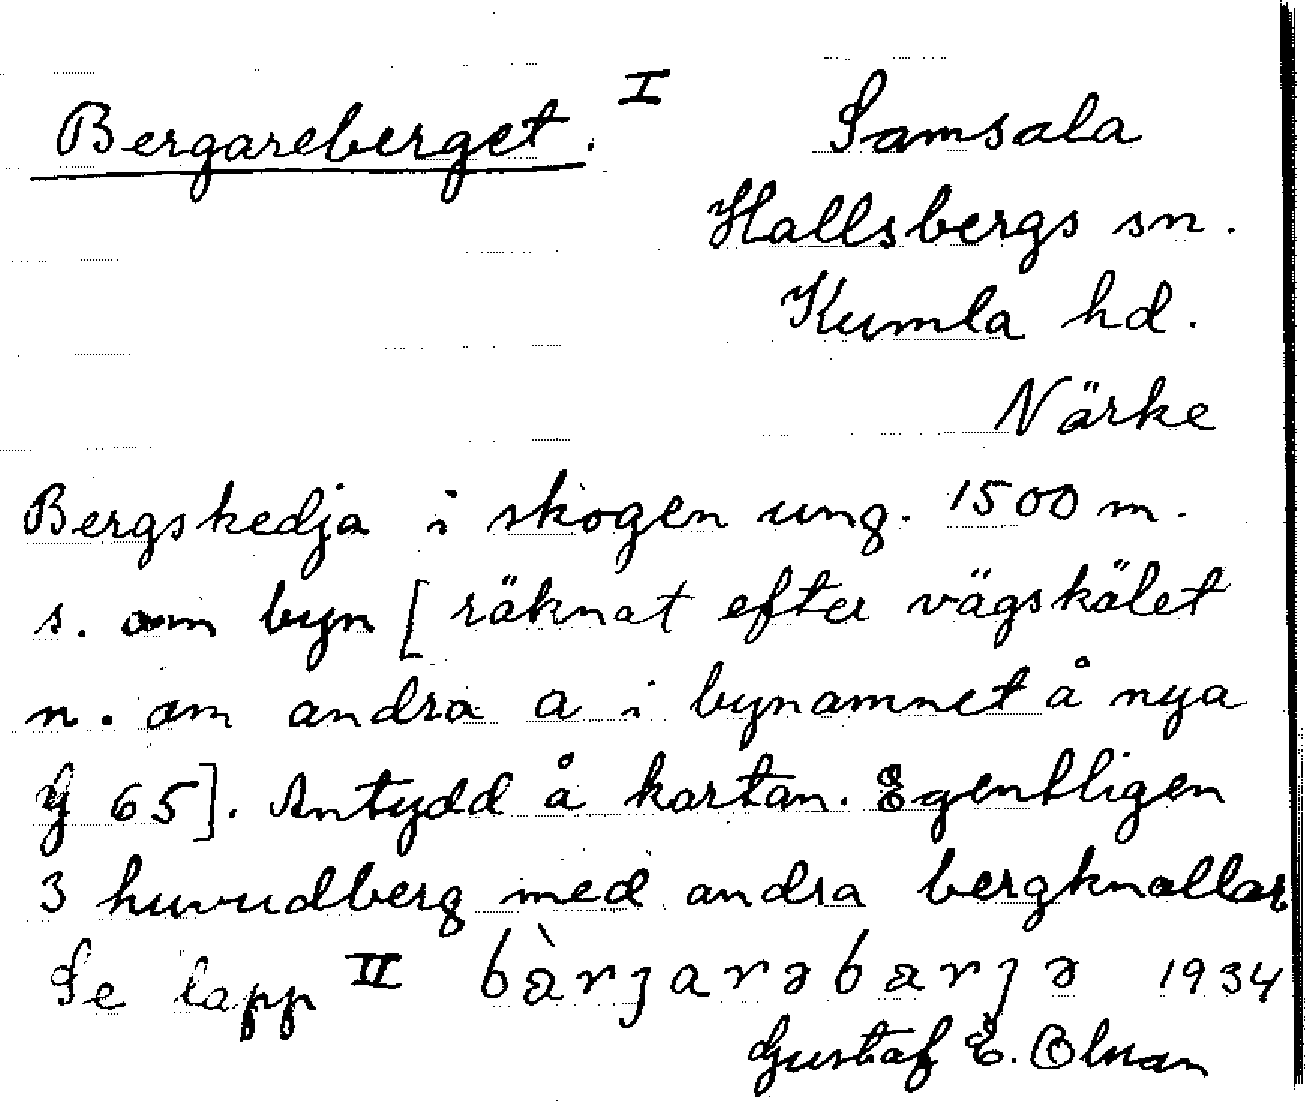 Bergareberget. I
Samsala
Hallsbergs sn.
Kumla hd.
Närke
Bergskedja i skogen ung. 1500 m.
s. om byn [räknat efter vägskälet
n. om andra a i bynamnet å nya
G 65]. Antydd å kartan. Egentligen
3 huvudberg med andra bergknallar
Se lapp II bàrȷarəbarȷə 1934
Gustaf E. Olsson